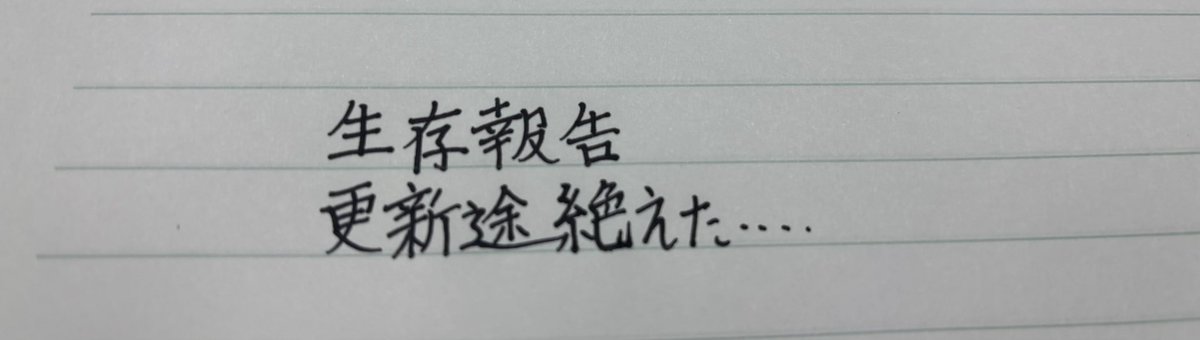 生存報告
更新途絶えた.....